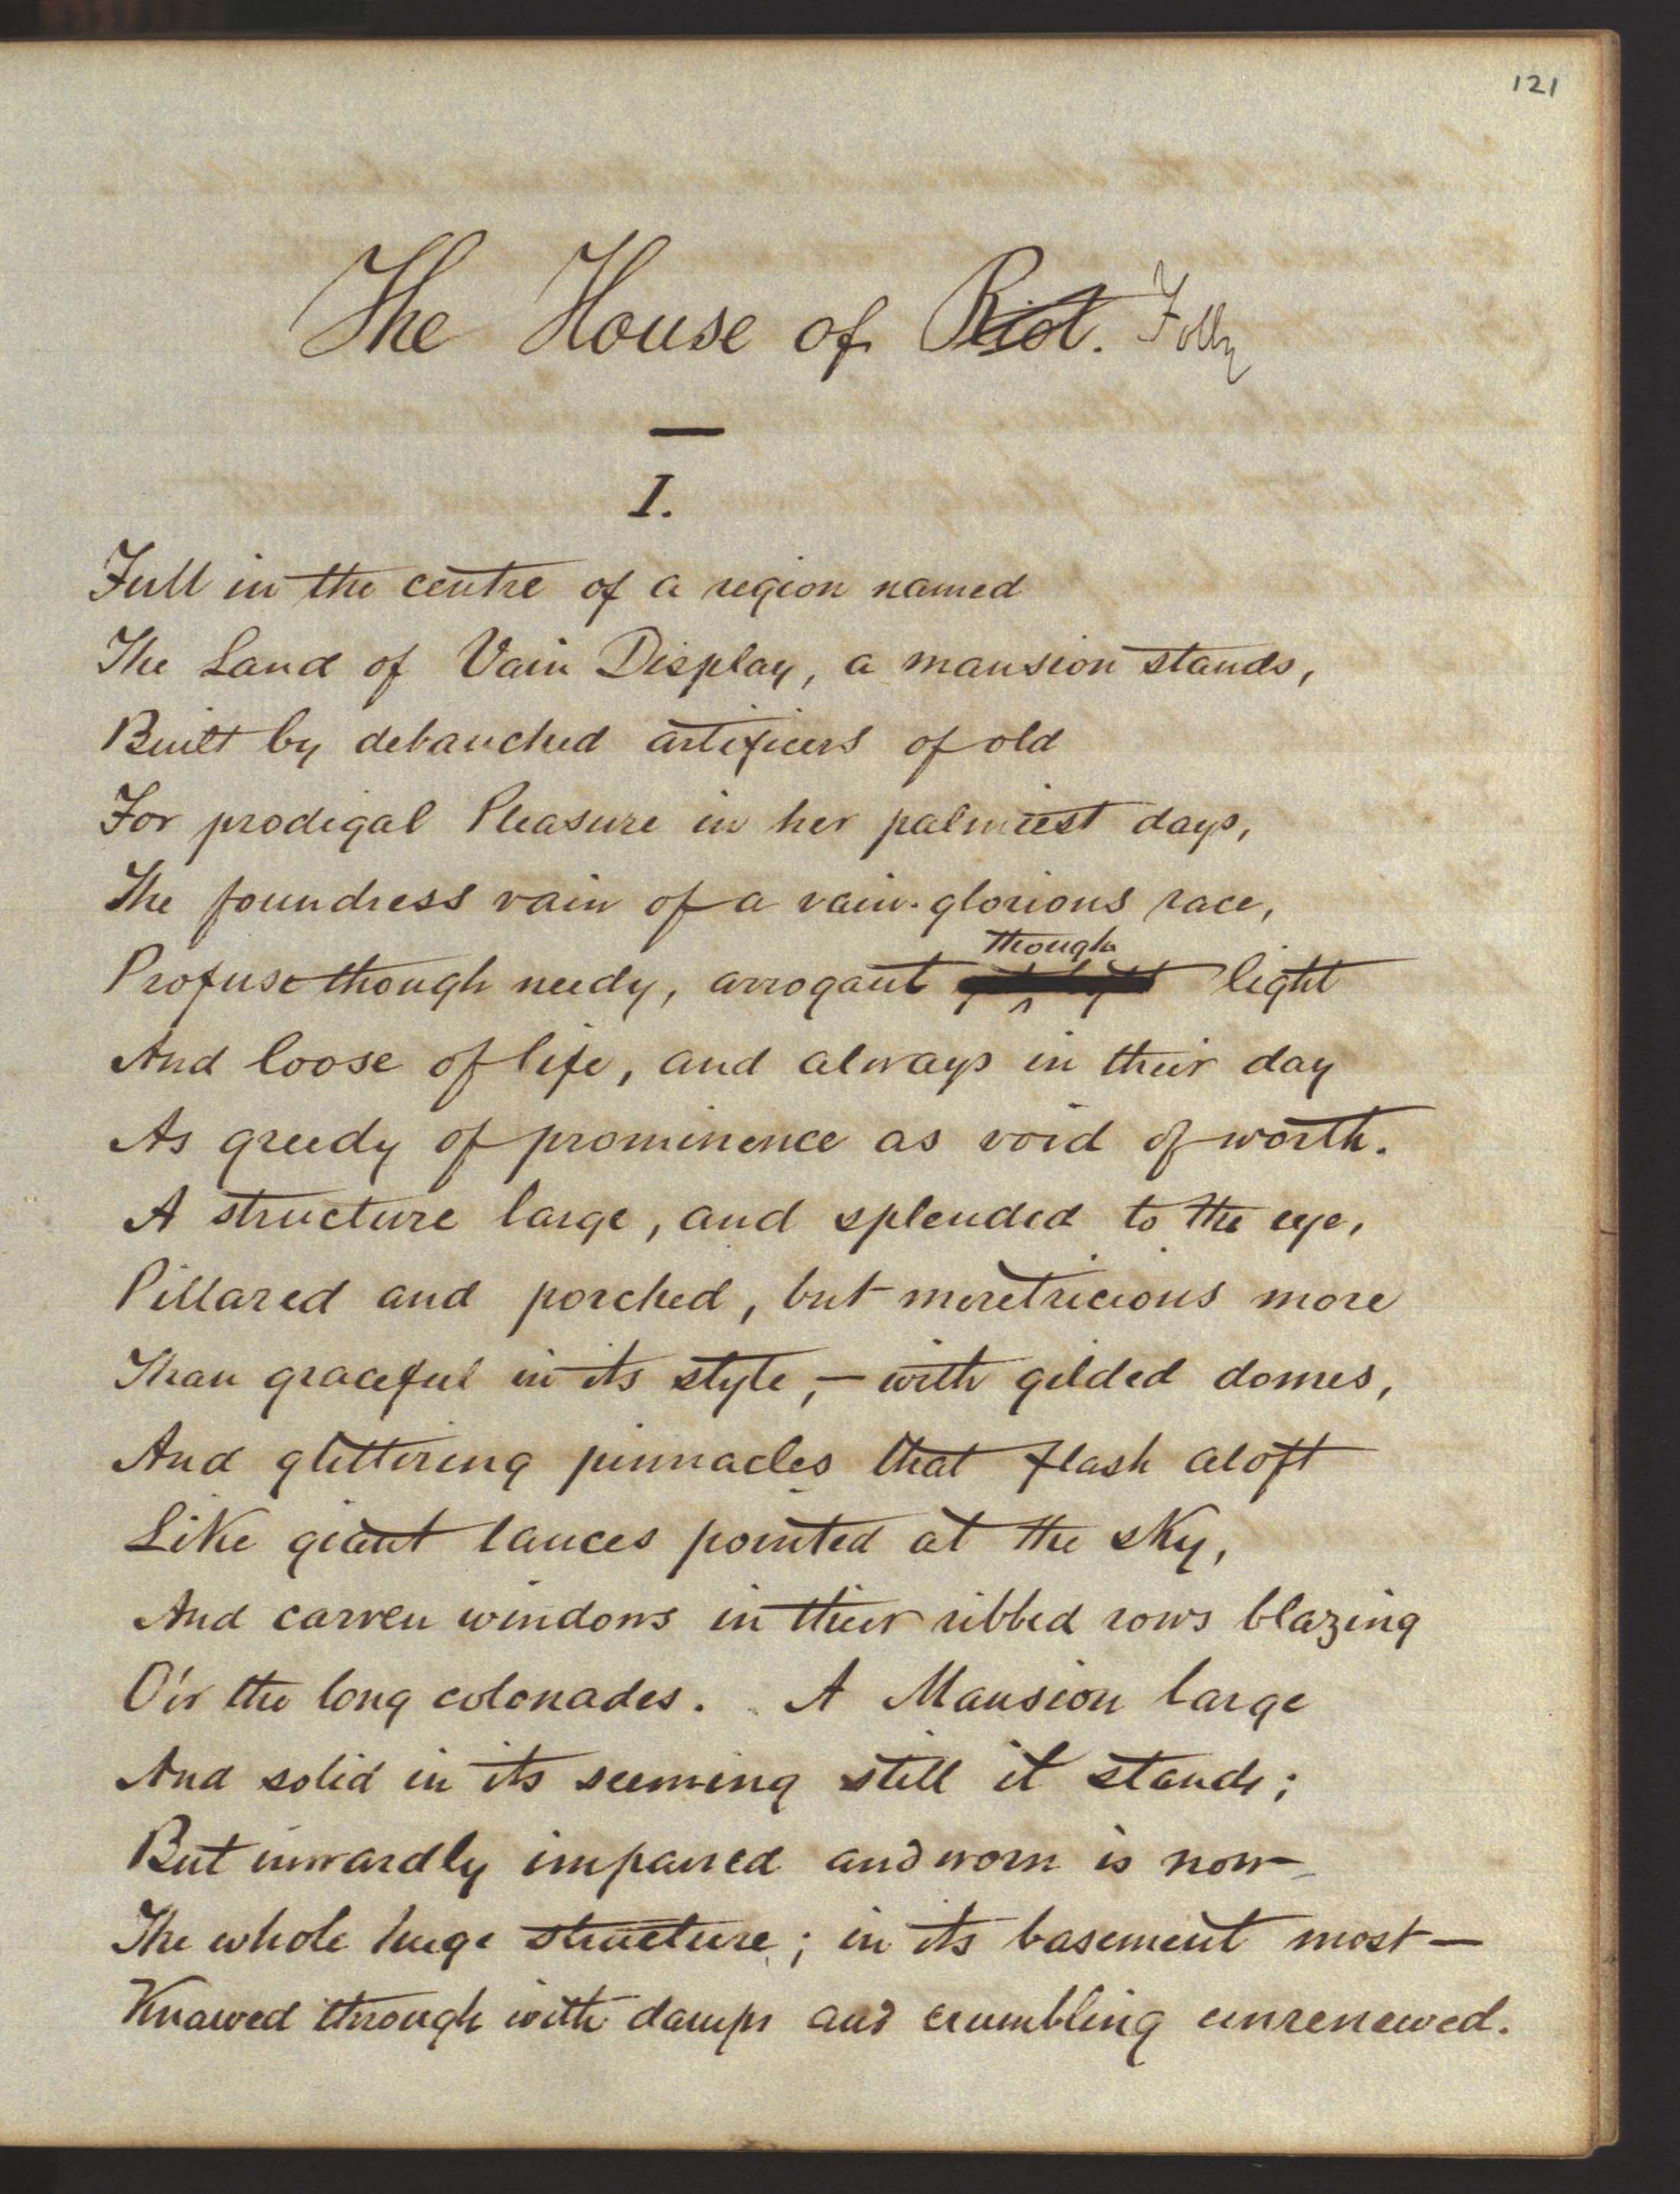 121
The House of Riot. Folly
I.
Full in the centre of a region named
The Land of Vain Display, a mansion stands,
Built by debauched artificers of old
For prodigal Pleasure in her palmiest days,
The foundress vain of a vain-glorious race,
though
Profuse though needy, arrogant light
And loose of life, and always in their day
As greedy of prominence as void of worth.
A structure large, and splended to the eye,
Pillared and porched, but meretricious more
Than graceful in its style,— with gilded domes,
And glittering pinnacles that flash aloft
Like giant lances pointed at the sky,
And carven windows in their ribbed rows blazing
O'er the long colonades. A Mansion large
And solid in its seeming still it stands;
But inwardly impaired and worn is now
The whole huge structure; in its basement most—
Knawed through with damps and crumbling unrenewed.